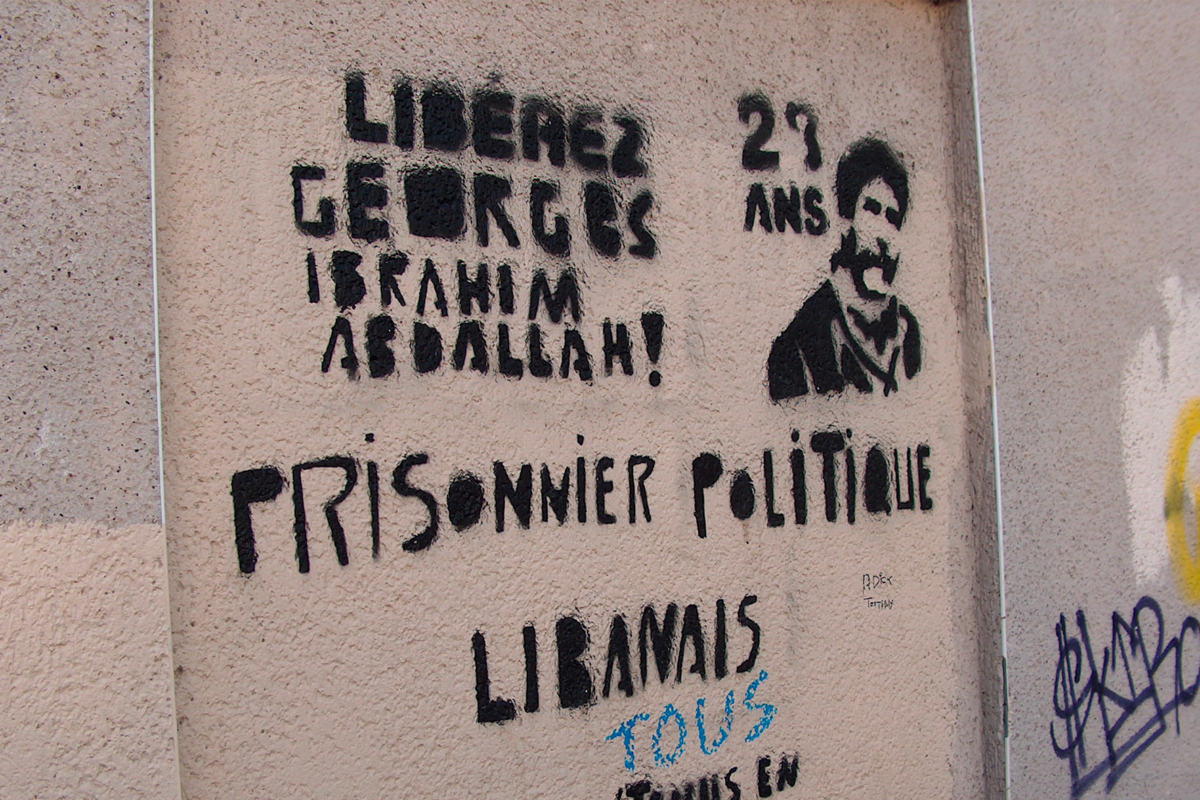 LIBÉREZ
GEORGES
IBRAHIM
ABDALLAH!
27
ANS
PRiSONNiER POLiTiQUE
LIBANAIS
TOUS
EN